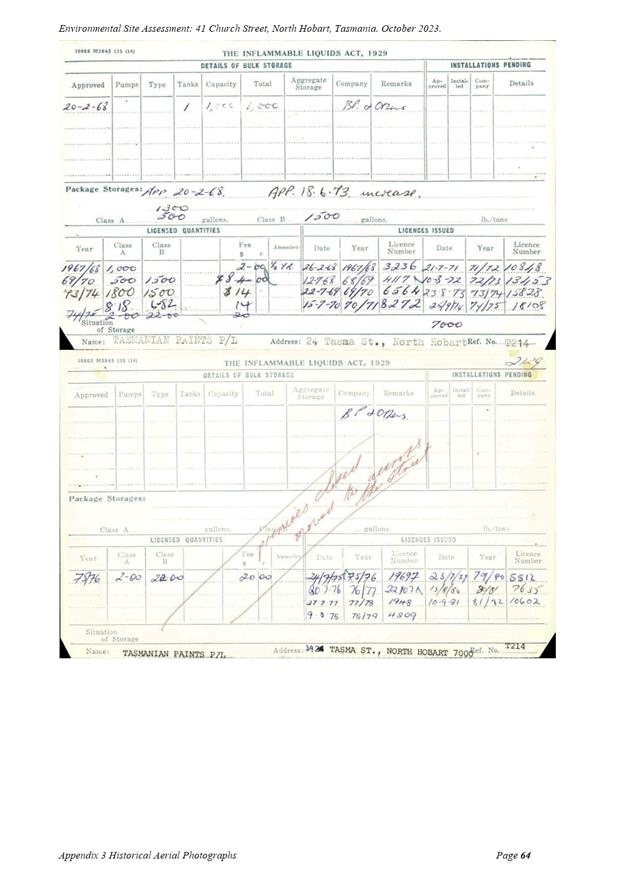 Environmental Site Assessment: 41 Church Street, North Hobart, Tasmania. October 2023.
THE INFLAMMABLE LIQUIDS ACT, 1929
DETAILS OF BULK STORAGE INSTALLATIONS PENDING
Approved Pumps Type Tanks Capacity Total Aggregate Storage Company Remarks Ap-proved Instal-led Com-pany Details
20-2-68 1 1,000 1,000 BP & Others
Package Storages: App. 20-2-68. APP. 18.6.73 increase.
1300
Class A 500 gallons, Class B 1500 gallons, lb./tons
LICENSED QUANTITIES LICENCES ISSUED
Year Class A Class B Fee $ c Amended Date Year Licence Number Date Year Licence Number
1967/68 1,000 2-00 ½ YR 26-2-68 1967/68 3236 21-7-71 71/72 10848
69/70 500 1500 68/69 4117 10-8-72 72/73 13453
73/74 1800 1500 $14 22-7-69 69/70 6564 23-8-73 73/74 15828
818 682 14 15-7-70 70/71 8272 74/75 18108
74/75 2-00 22-00 20
Situation of Storage 7000
Name: TASMANIAN PAINTS P/L Address: 24 Tasma St., North Hobart Ref. No. T214
THE INFLAMMABLE LIQUIDS ACT, 1929
DETAILS OF BULK STORAGE INSTALLATIONS PENDING
Approved Pumps Type Tanks Capacity Total Aggregate Storage Company Remarks Ap-proved Instal-led Com-pany Details
BP & Others
premises closed
moved to across
the street
Package Storages:
Class A gallons, Class B gallons, lb./tons
LICENSED QUANTITIES LICENCES ISSUED
Year Class A Class B Fee $ c Amended Date Year Licence Number Date Year Licence Number
75/76 2-00 22-00 20 00 24/7/75 75/76 19697 79/80 5512
76/77 7655
27 7 77 77/78 1948 10-9-81 81/82 10602
78/79 4809
Situation of Storage
Name: TASMANIAN PAINTS P/L Address: TASMA ST., NORTH HOBART 7000 Ref. No. T214
Appendix 3 Historical Aerial Photographs Page 64